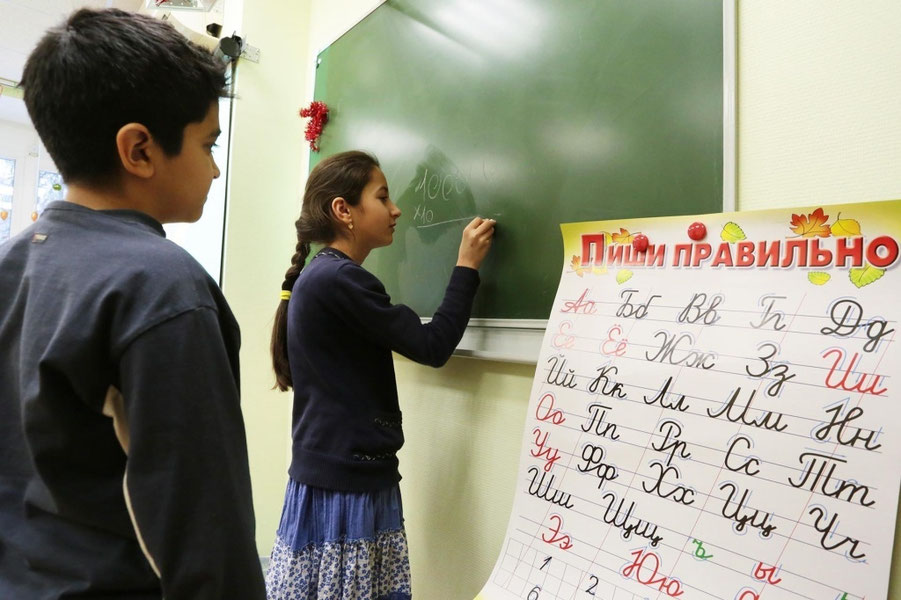 Пиши правильно
Аа Бб Вв Гг Дд
Ее Ёё Жж Зз Ии
Йй Кк Лл Мм Нн
Оо Пп Рр Сс Тт
Уу Фф Хх Цц Чч
Шш Щщ ъ ы
Ээ Юю
1 2
6